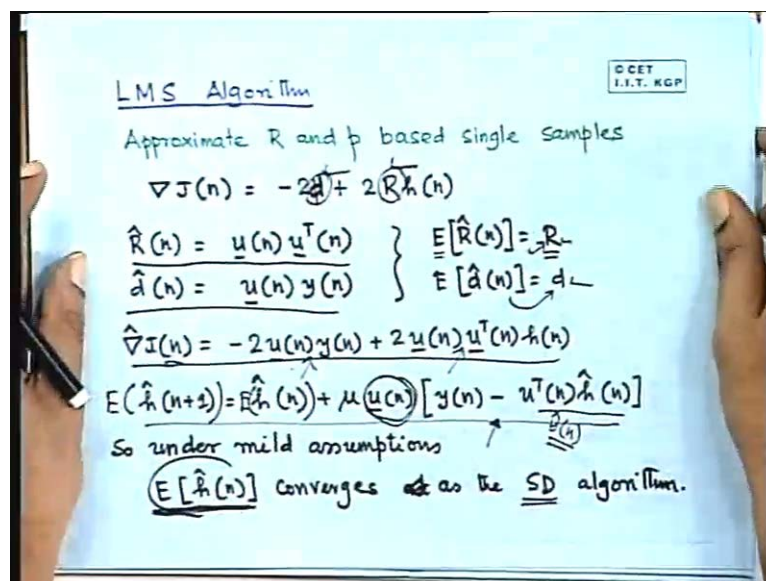 © CET
I.I.T. KGP
LMS Algorithm
Approximate R and p based single samples
∇J(n) = -2d + 2Rh(n)
R̂(n) = u(n) uᵀ(n) } E[R̂(n)] = R
d̂(n) = u(n) y(n) } E[d̂(n)] = d
∇̂J(n) = -2u(n)y(n) + 2u(n)uᵀ(n)h(n)
E(ĥ(n+1)) = E(ĥ(n)) + μ u(n) [y(n) - uᵀ(n)ĥ(n)]
So under mild assumptions
E[ĥ(n)] converges as the SD algorithm.